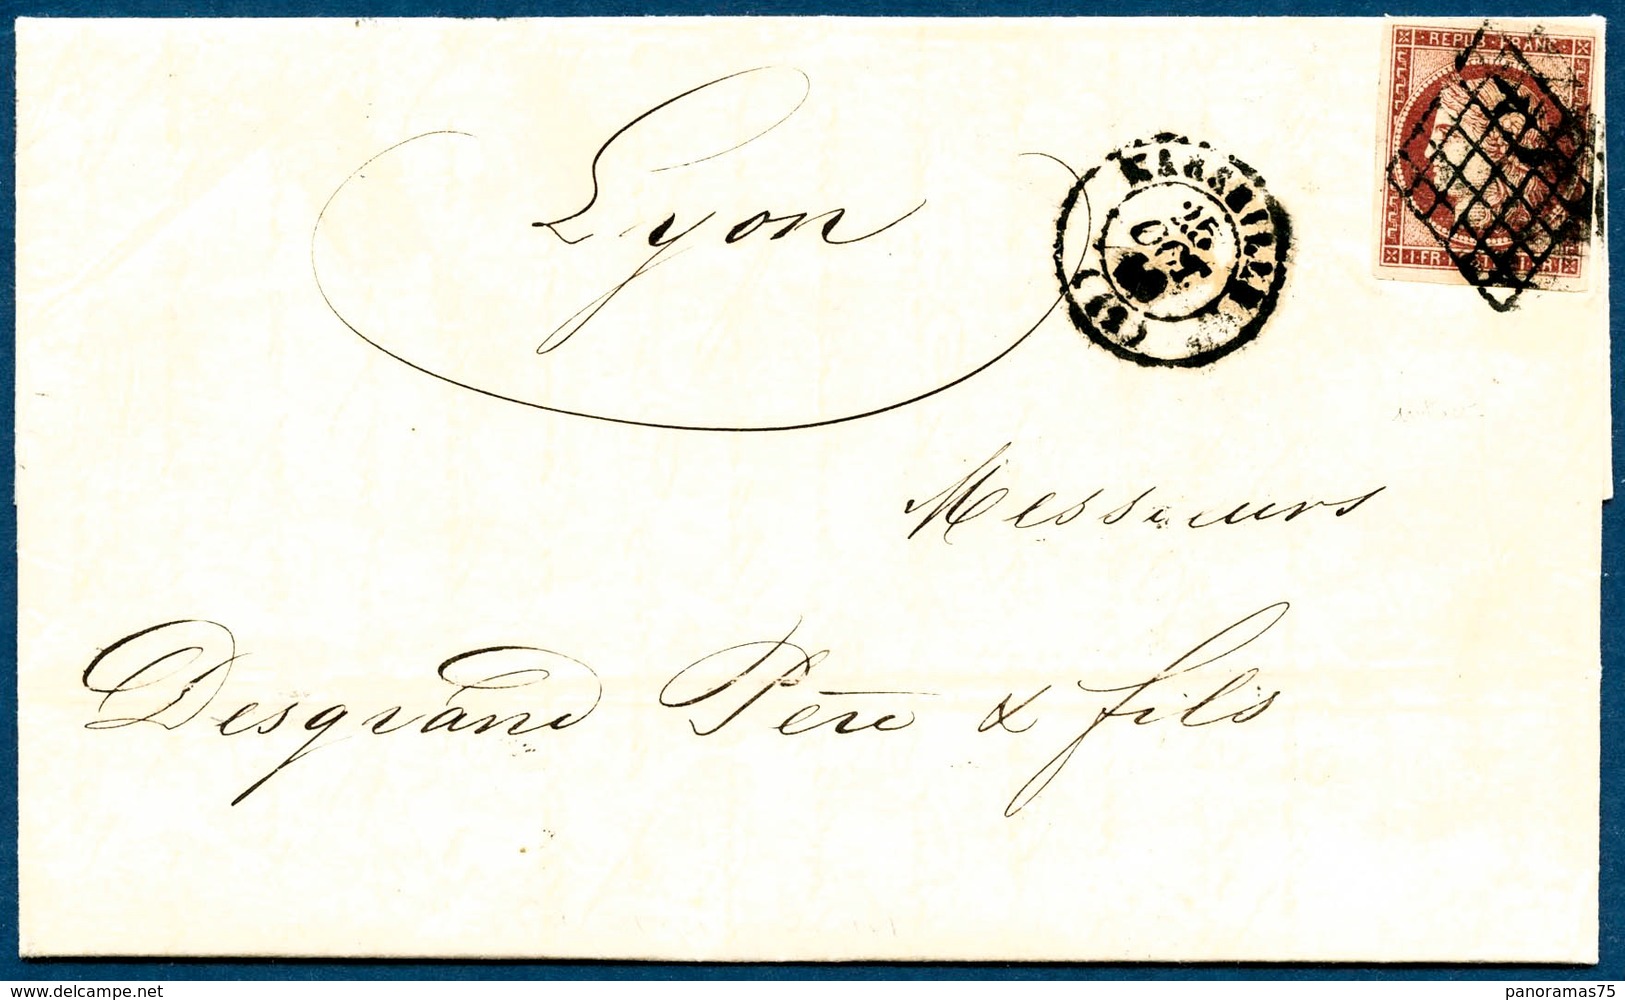 REPUB · FRANC
Lyon
MARSEILLE
25
(12)
1 · FR
Messieurs
Desgrand Père & fils
www.delcampe.net
panoramas75